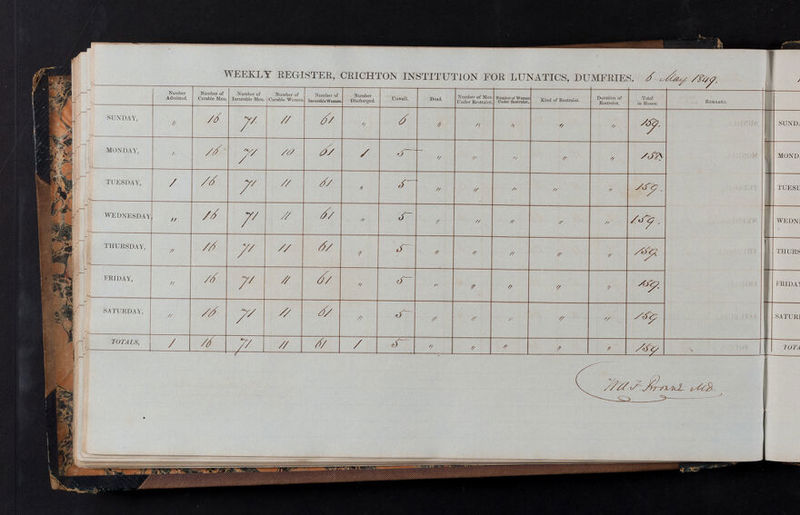 WEEKLY REGISTER, CRICHTON INSTITUTION FOR LUNATICS, DUMFRIES. 6 May 1849.
Number Admitted. Number of Curable Men. Number of Incurable Men. Number of Curable Women. Number of Incurable Women. Number Discharged. Unwell. Dead. Number of Men Under Restraint. Number of Women Under Restraint. Kind of Restraint. Duration of Restraint. Total in House. REMARKS.
SUNDAY, " 16 71 11 61 " 6 " " " " " 159.
MONDAY, " 16 71 10 61 1 5 " " " " " 158.
TUESDAY, 1 16 71 11 61 " 5 " " " " " 159.
WEDNESDAY, " 16 71 11 61 " 5 " " " " " 159.
THURSDAY, " 16 71 11 61 " 5 " " " " " 159.
FRIDAY, " 16 71 11 61 " 5 " " " " " 159.
SATURDAY, " 16 71 11 61 " 5 " " " " " 159
TOTALS, 1 16 71 11 61 1 5 " " " " " 159
W A F Browne MD.
SUND
MOND
TUESI
WEDN
THURS
FRIDA
SATUR
TOTA